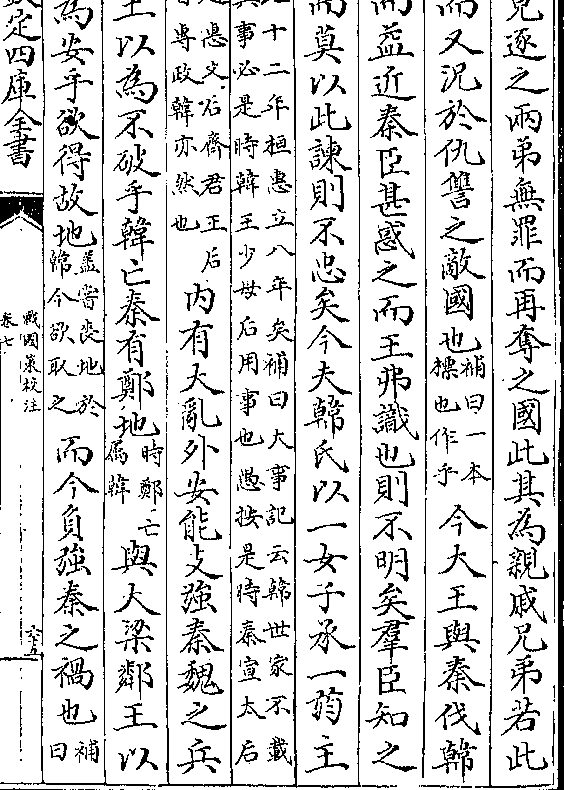 兄逐之兩弟無罪而再奪之國此其為親戚兄弟若此
而又況於仇讐之敵國也補曰一本標也作乎今大王與秦伐韓
而益近秦臣甚惑之而王弗識也則不明矣羣臣知之
而莫以此諫則不忠矣今夫韓氏以一女子承一弱主
十二年桓惠立八年矣補曰大事記云韓世家不載
其事必是時韓王少母后用事也愚按是時秦宣太后
惠文后齊君王后
專政韓亦然也
內有大亂外安能支強秦魏之兵
王以為不破乎韓亡秦有鄭地時鄭亡屬韓與大梁鄰王以
為安乎欲得故地蓋嘗喪地於韓今欲取之而今負強秦之禍也補曰
欽定四庫全書
戰國策校注
卷七